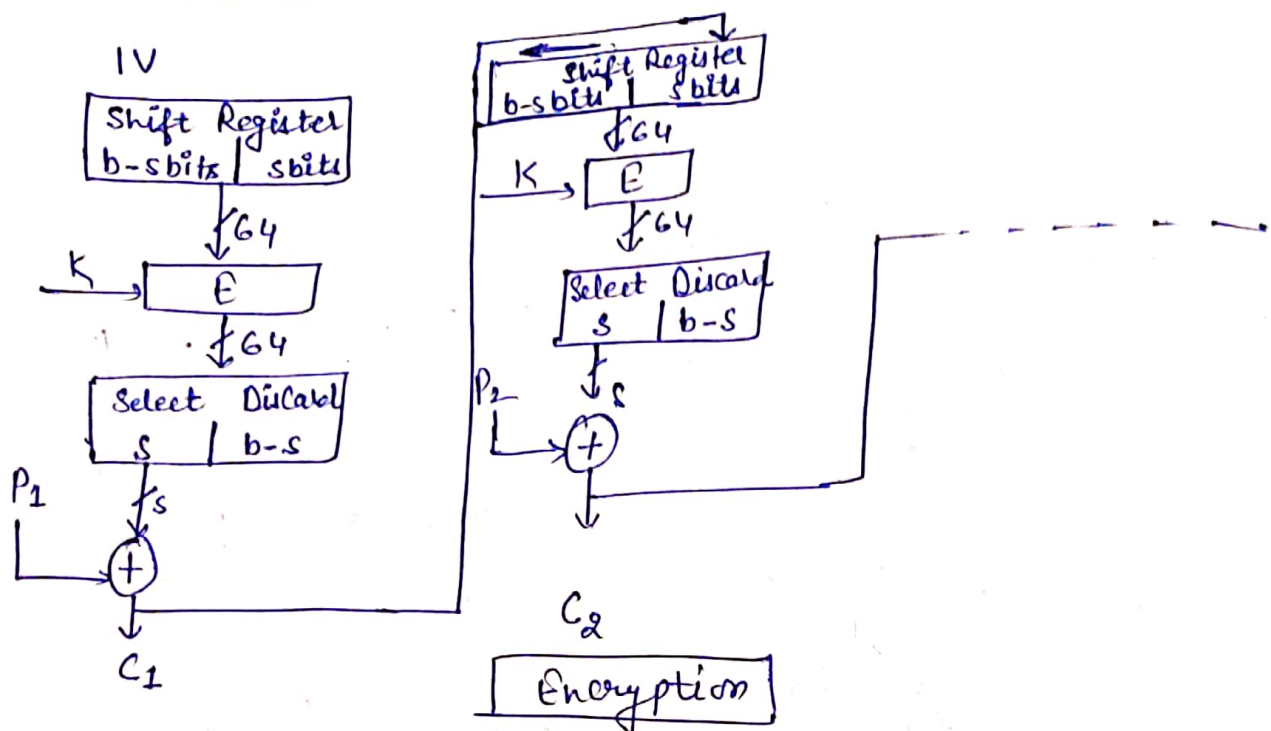 IV
Shift Register
b-sbits | sbits
64
K
E
64
Select Discard
s | b-s
s
P1
+
C1
Shift Register
b-sbits | sbits
64
K
E
64
Select Discard
s | b-s
s
P2
+
C2
Encryption